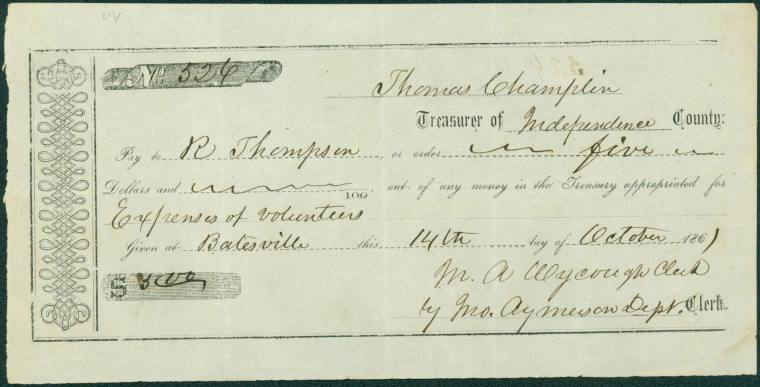 No 524
Thomas Champlin
Treasurer of Independence County:
Pay to R Thompson, or order five
Dollars and /100, out of any money in the Treasury appropriated for
Expenses of volunteers
Given at Batesville this 14th day of October 1861
M. A Wycough Clerk
y Jno. Dept. Clerk.
$ 500